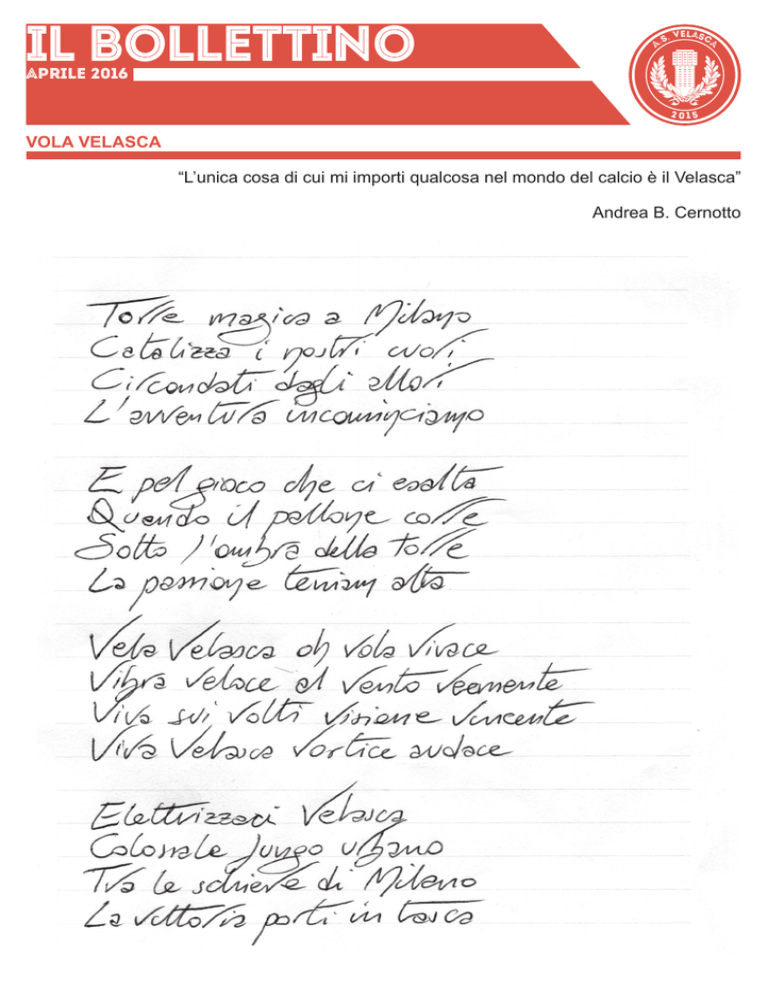 IL BOLLETTINO
APRILE 2016
A. S. VELASCA
2015
VOLA VELASCA
“L’unica cosa di cui mi importi qualcosa nel mondo del calcio è il Velasca”
Andrea B. Cernotto
Torre magica a Milano
Catalizza i nostri cuori
Circondati dagli allori
L'avventura incominciamo
E pel gioco che ci esalta
Quando il pallone corre
Sotto l'ombra della torre
La passione teniam alta
Vela Velasca oh vola vivace
Vibra veloce al vento veemente
Viva sui volti visione vincente
Viva Velasca vortice audace
Elettrizzaci Velasca
Colossale fungo urbano
Tra le schiere di Milano
La vittoria porti in tasca